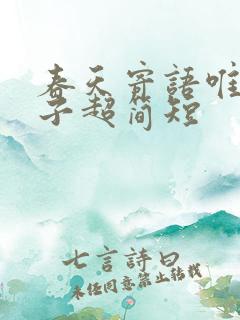 春天寄語唯
子超简短
七言詩曰
未经同意禁止转载